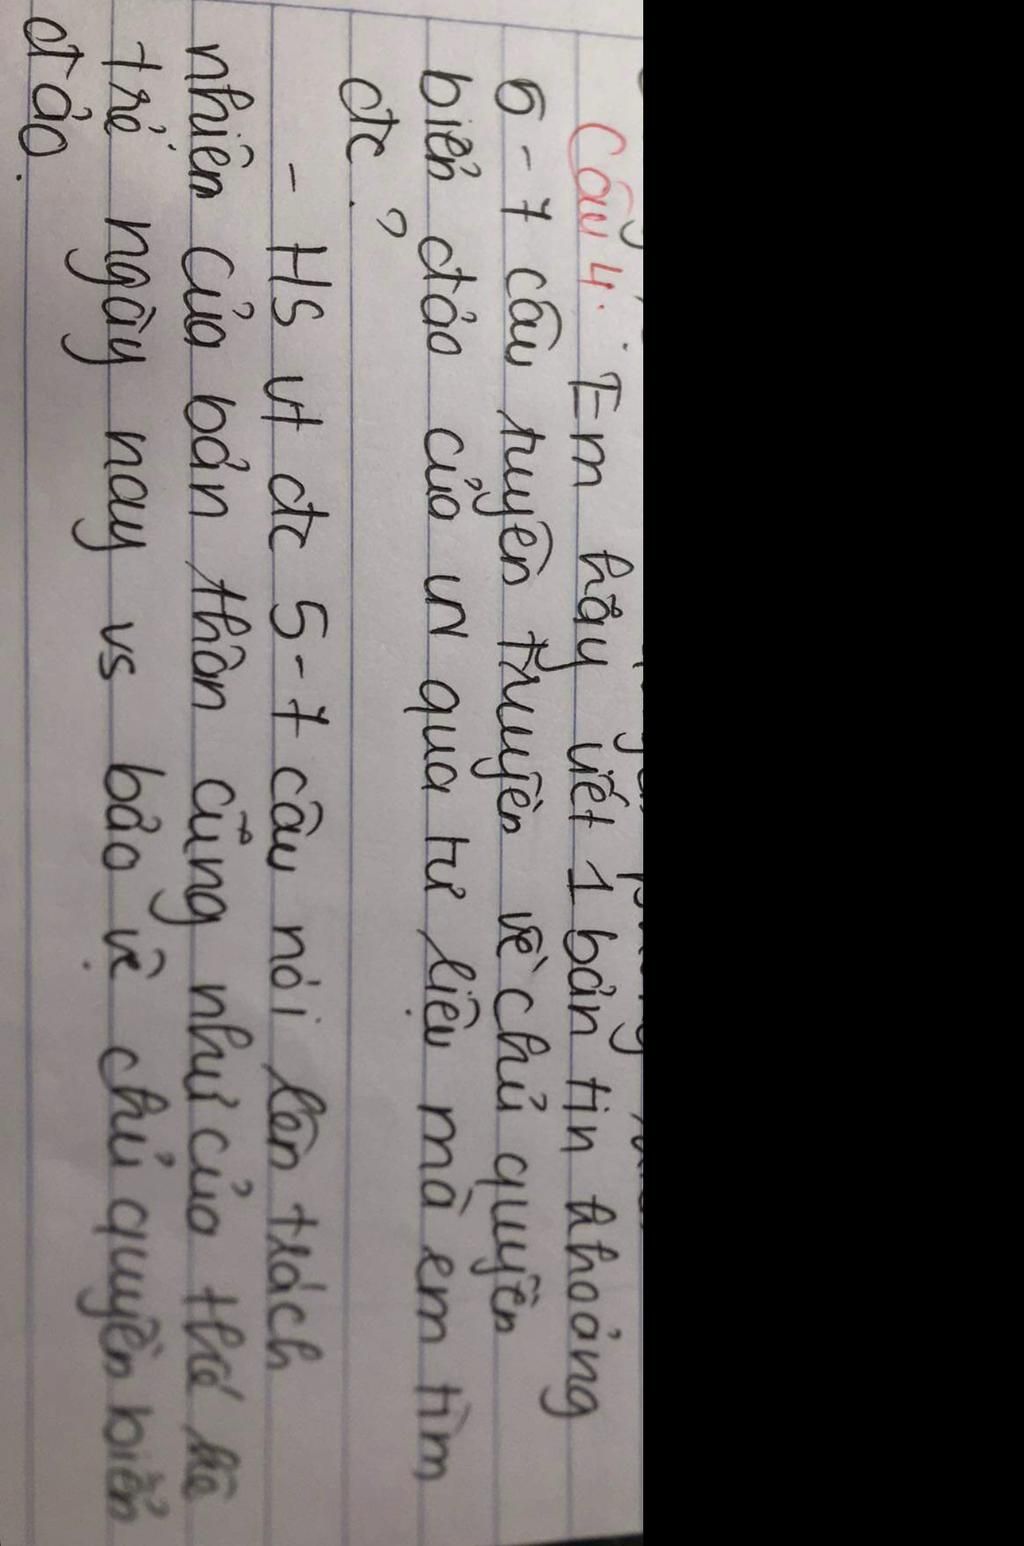 Câu 4. Em hãy viết 1 bản tin khoảng
5-7 câu tuyên truyền về chủ quyền
biển đảo của VN qua tư liệu mà em tìm
đc?
- HS vt đc 5-7 câu nói lên trách
nhiệm của bản thân cũng như của thế hệ
trẻ ngày nay vs bảo vệ chủ quyền biển
đảo.